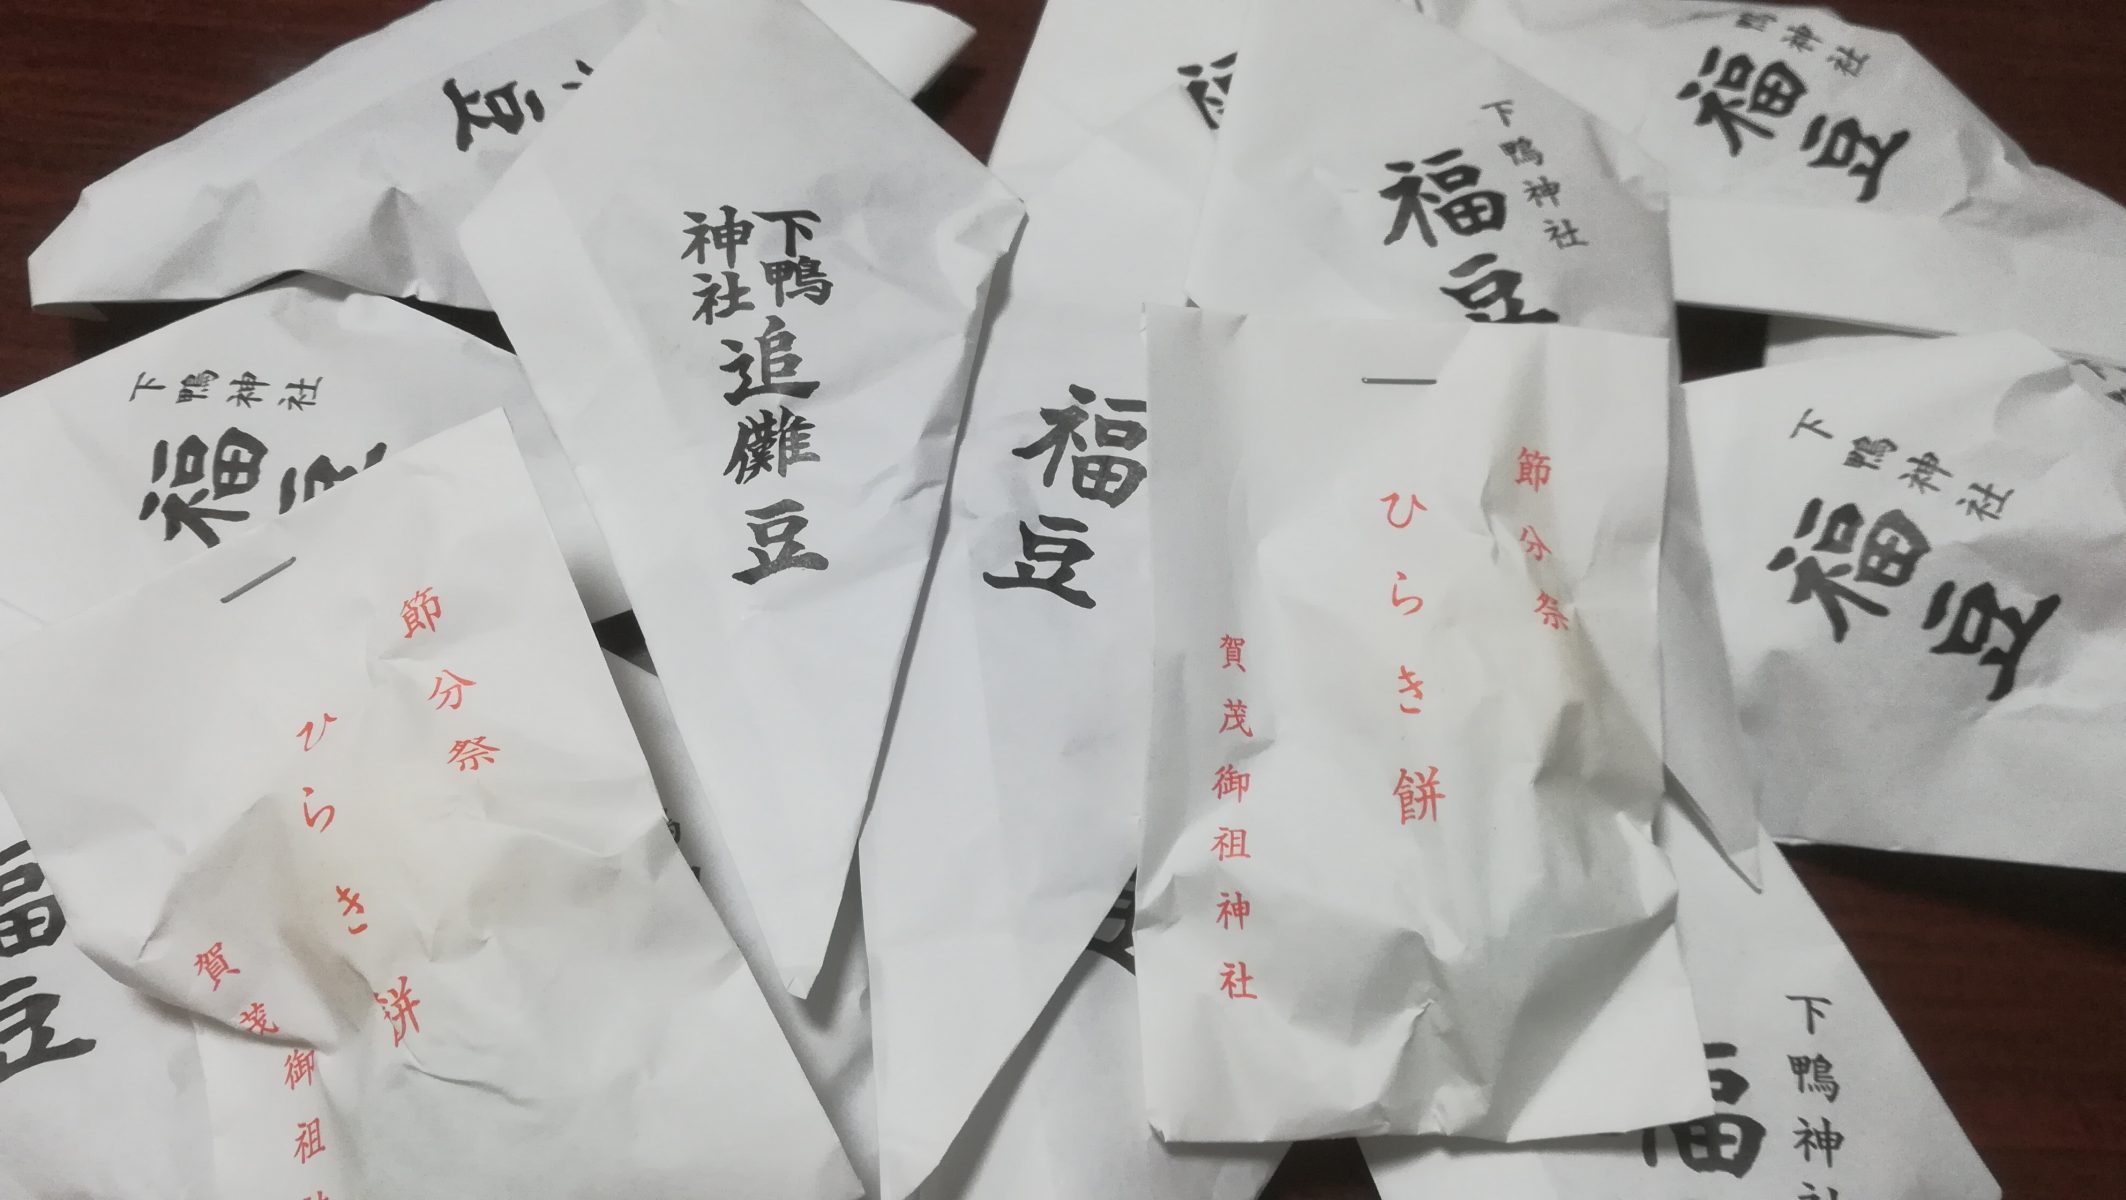 豆
下鴨
神社
追儺豆
福
下鴨神社
福豆
鴨神社
福豆
下鴨神社
福豆
福豆
節分祭
ひらき餅
賀茂御祖神社
下鴨神社
福豆
節分祭
ひらき餅
賀茂御祖
福豆
下鴨神社
福